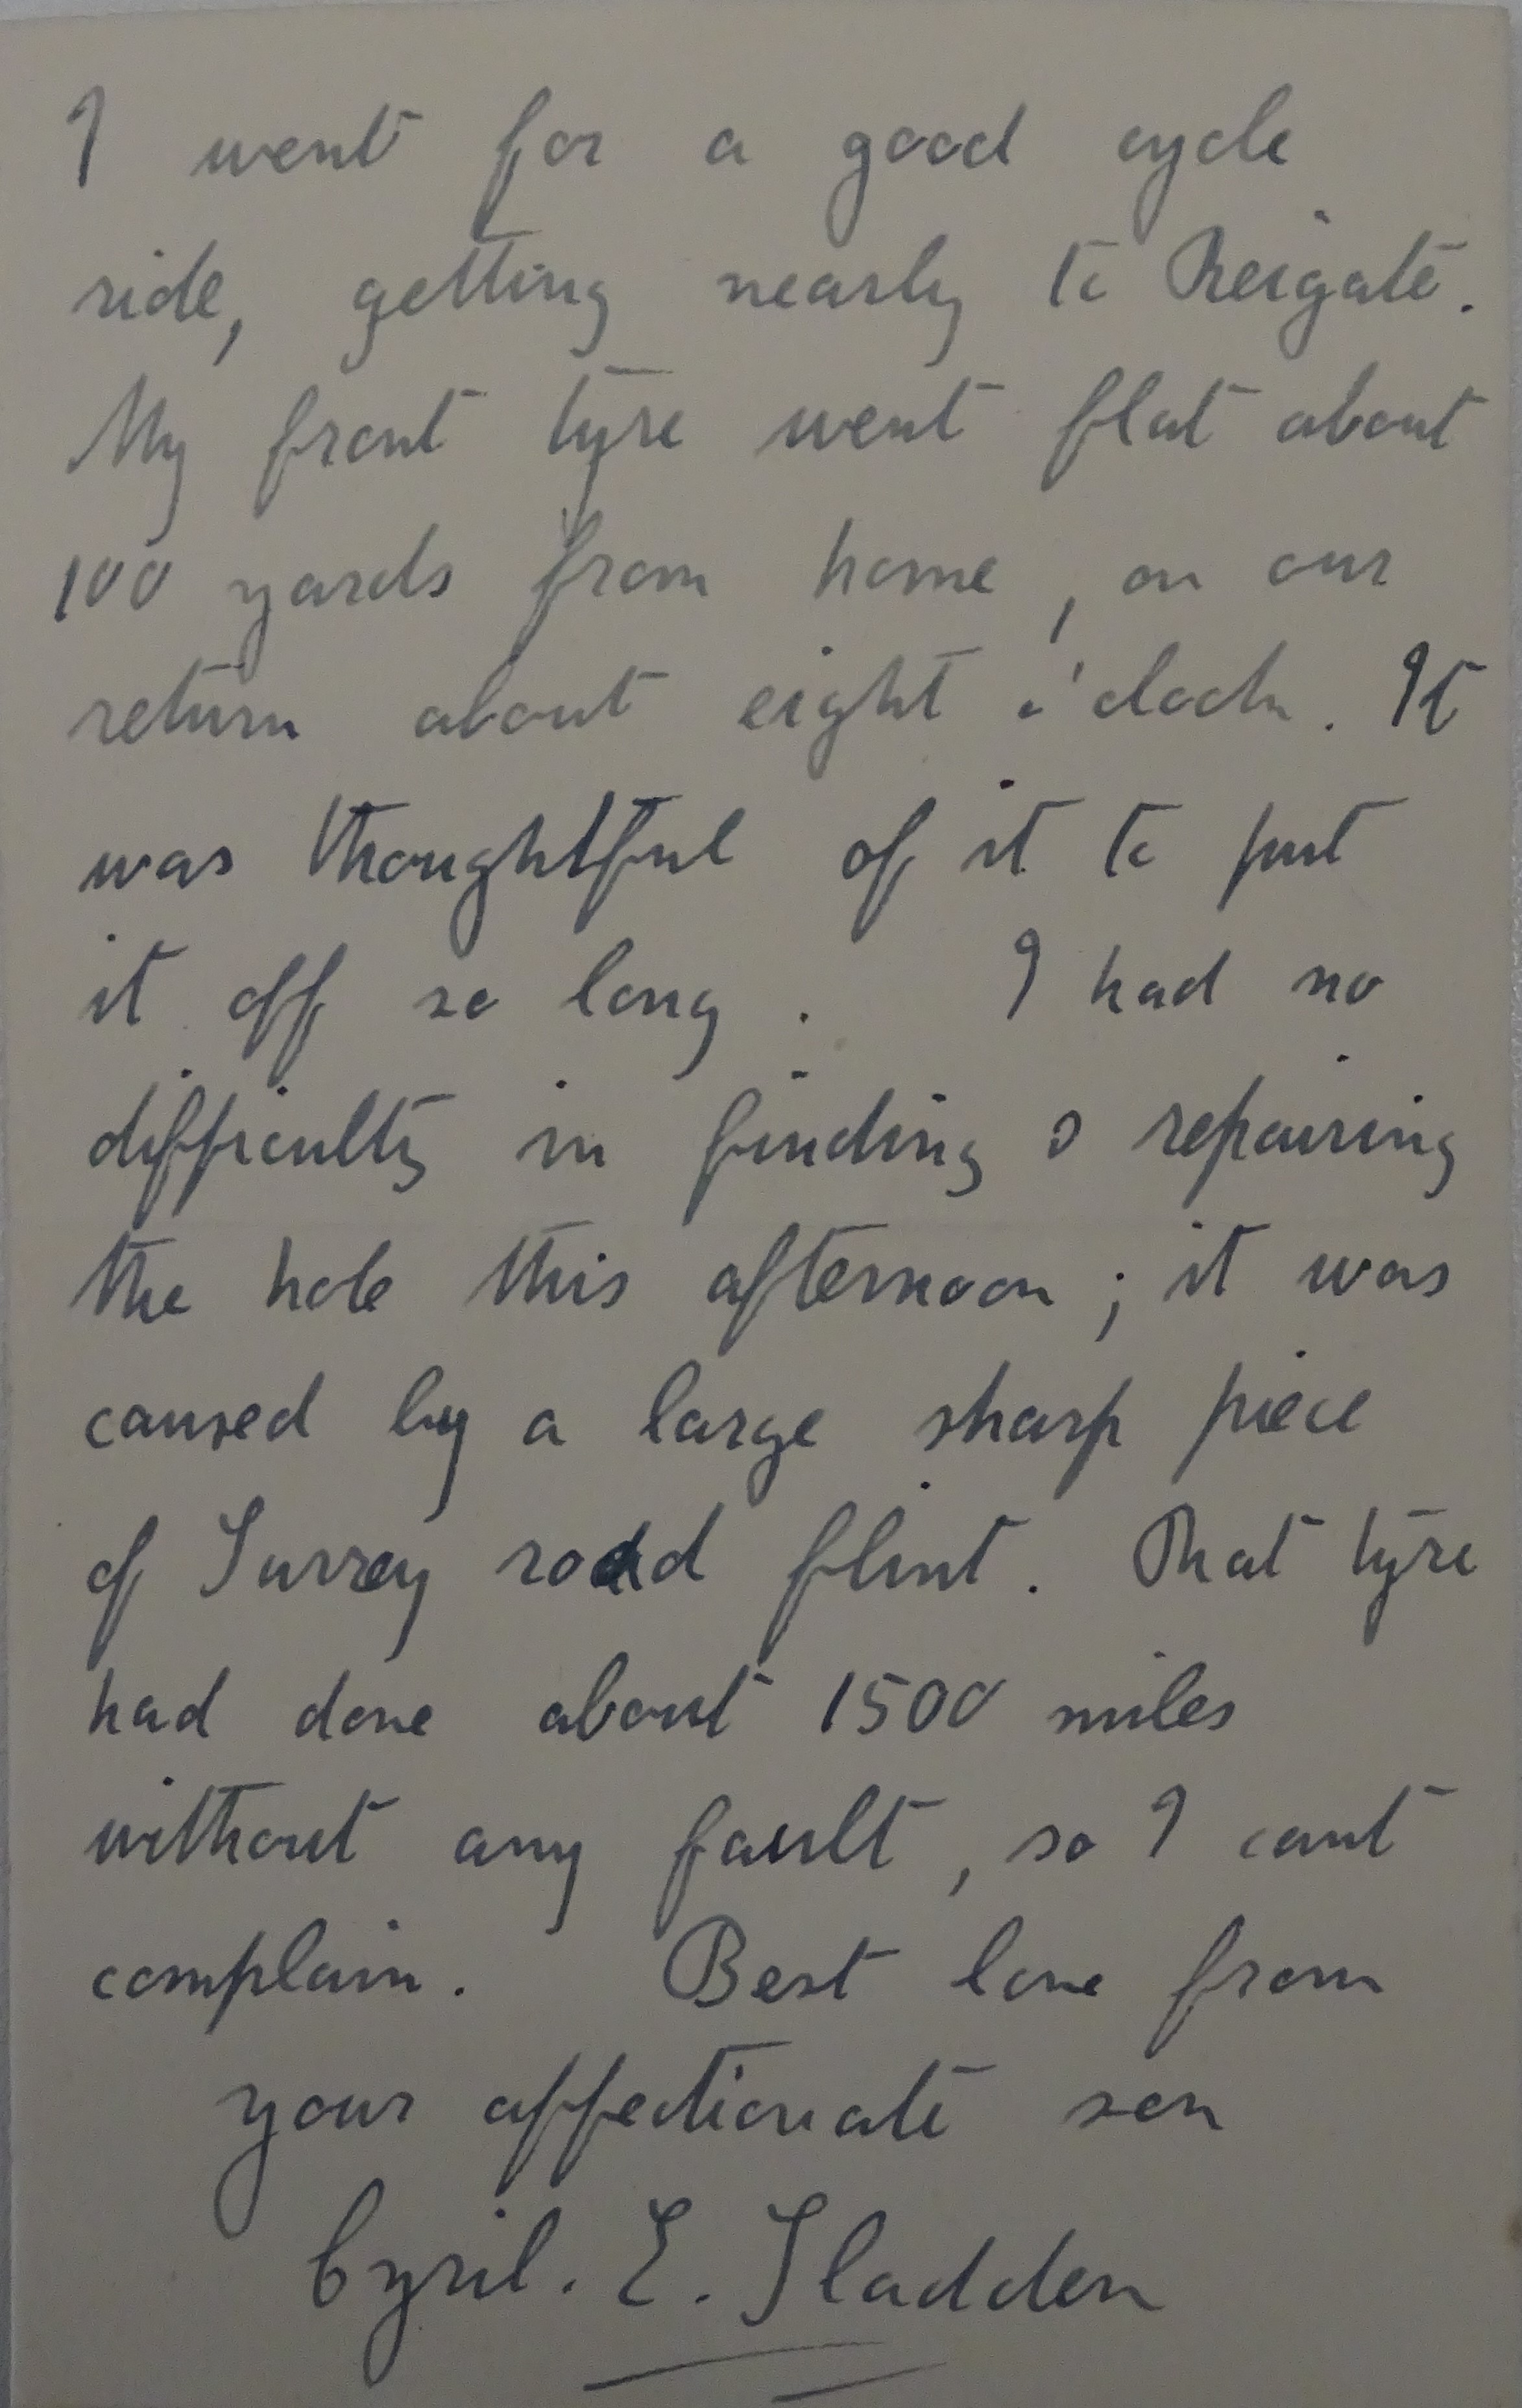 I went for a good cycle
ride, getting nearly to Reigate.
My front tyre went flat about
100 yards from home, on our
return about eight o'clock. It
was thoughtful of it to put
it off so long. I had no
difficulty in finding & repairing
the hole this afternoon; it was
caused by a large sharp piece
of Surrey road flint. That tyre
had done about 1500 miles
without any fault, so I cant
complain. Best love from
your affectionate son
Cyril. E. Sladden